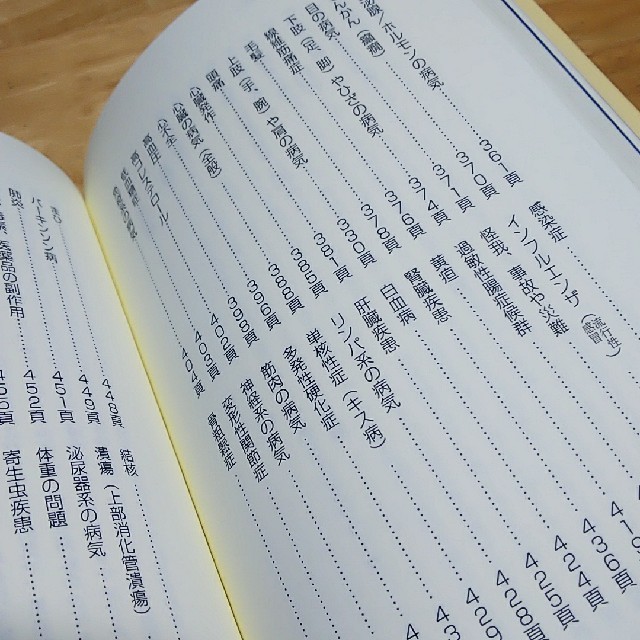 ／ホルモンの病気 361頁
てんかん（癲癇） 370頁
目の病気 371頁
下肢（足、脚）やひざの病気 374頁
線維筋痛症 376頁
毛髪 378頁
上肢（手、腕）や肩の病気
頭痛 381頁
心臓発作 385頁
心臓の病気（全般） 388頁
心不全 396頁
高血圧 398頁
高コレステロール 402頁
403頁
404頁
感染症
インフルエンザ（流行性感冒）
怪我、事故や災難
過敏性腸症候群
黄疸
腎臓疾患
白血病
肝臓疾患
リンパ系の病気
単核性症（キス病）
多発性硬化症
筋肉の病気
神経系の病気
変形性関節症
骨粗鬆症
436頁
424頁
425頁
428頁
429
448頁
パーキンソン病 449頁
肺炎 451頁
医薬品の副作用 452頁
455頁
結核
潰瘍（上部消化管潰瘍）
泌尿器系の病気
体重の問題
寄生虫疾患